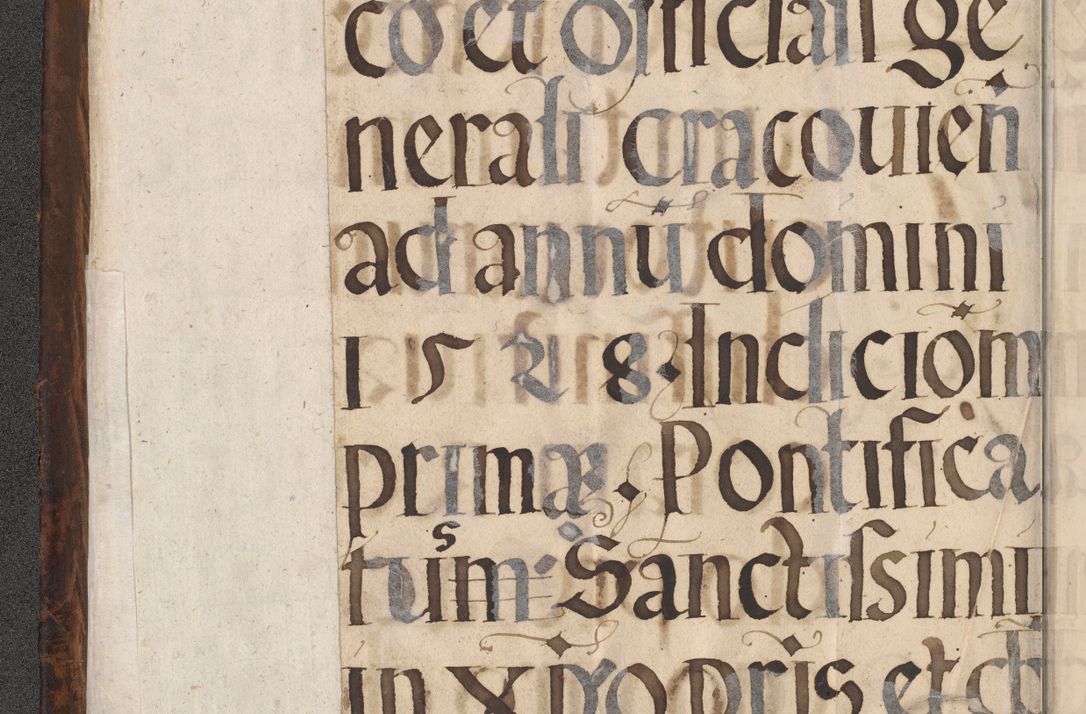 co et officiali ge
nerali cracouień
ad annū domini
1528. Indicionē
primā. Pontifica
tum s Sanctissimi
in xp̄o p̄ris et